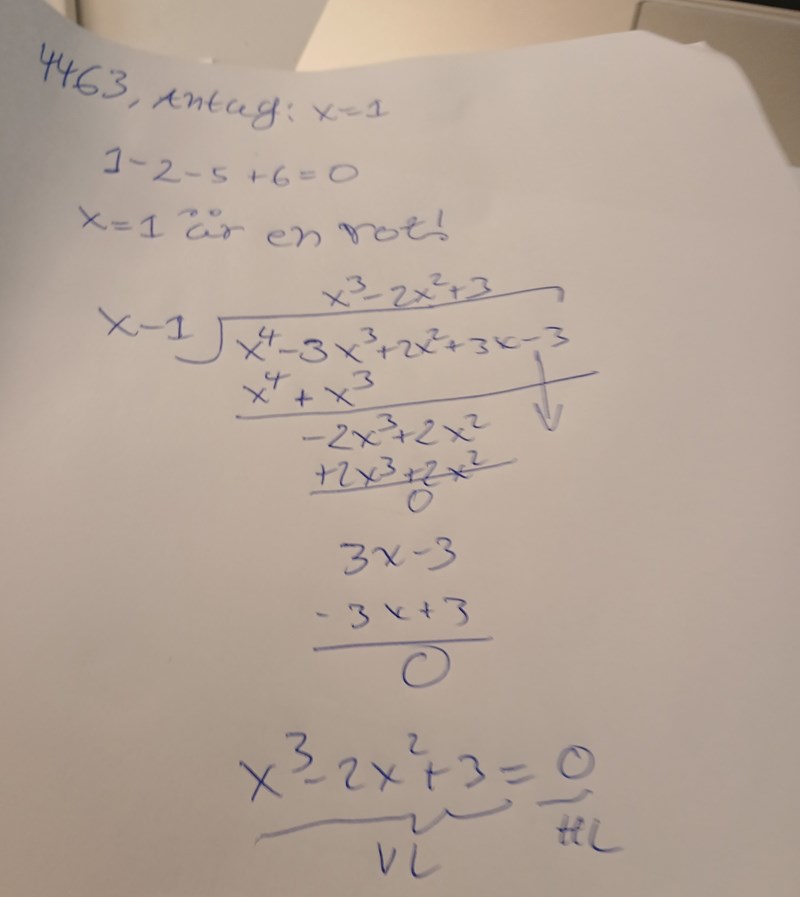 4463, Antag: x=1
1-2-5+6=0
x=1 är en rot!
x³-2x²+3
x-1 x⁴-3x³+2x²+3x-3
x⁴+x³
-2x³+2x²
+2x³+2x²
0
3x-3
-3x+3
0
x³-2x²+3=0
VL HL